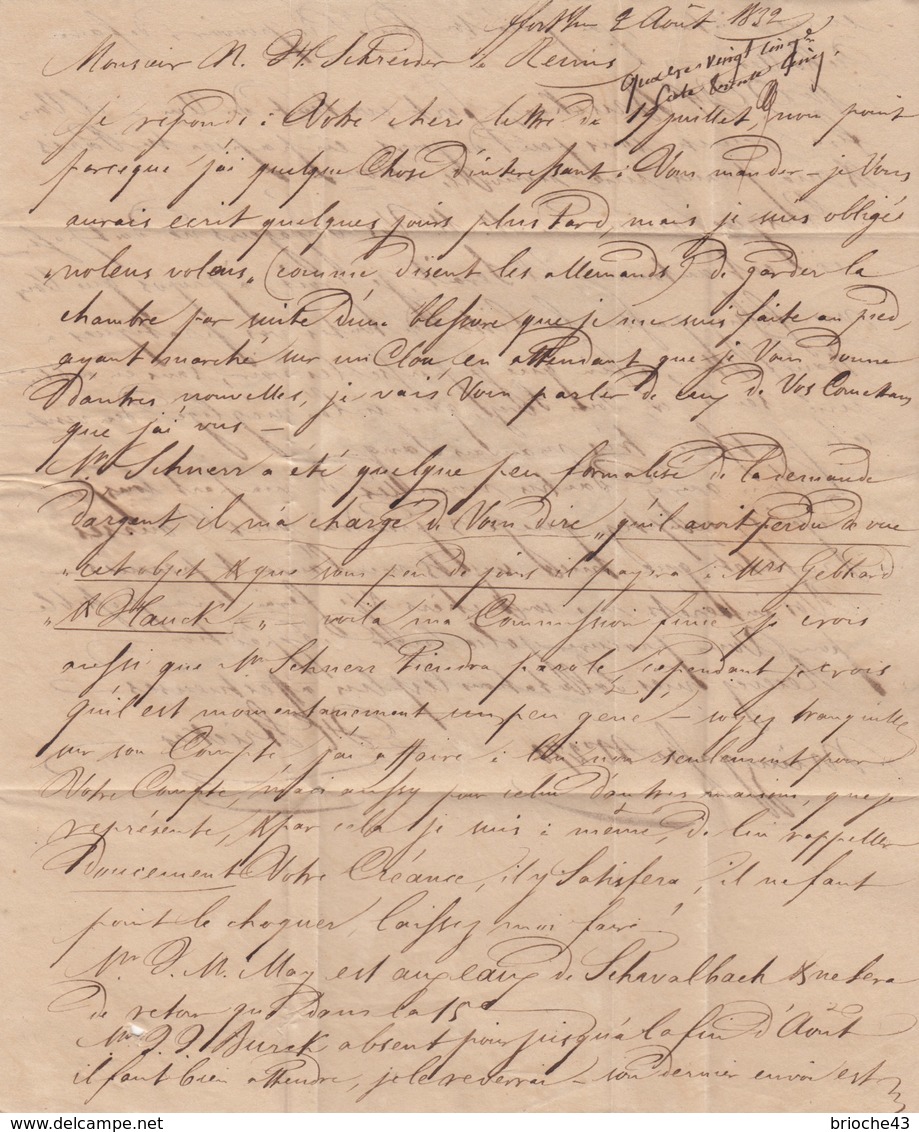 2 Août 1832
Monsieur N. H. Schreider à Reims
Quatre vingt cinq
je réponds à Votre chere lettre de 17 juillet, non point
parceque j'ai quelque Chose d'interessant à Vous mander – je Vous
aurais ecrit quelques jours plus tard, mais je suis obligé
„nolens volens„ (comme disent les allemands) de garder la
chambre par suite d'une blessure que je me suis faite au pied,
ayant marché sur un Clou, en attendant que je Vous donne
d'autres nouvelles, je vais Vous parler de ceux de Vos Comettans
que j'ai vus –
Mr. Schnerr a été quelque peu formalisé de la demande
d'argent, il m'a chargé de Vous dire „qu'il avoit perdu de vue
„cet objet & que sous peu de jours il payera à Mrs Gebhard
„& Hauck – „ – voila ma Commission finie, je crois
aussi que Mr. Schnerr tiendra parole, cependant je crois
qu'il est momentanement un peu gené – soyez tranquille
sur son Compte, j'ai affaire à lui non seulement pour
Votre Compte, mais aussy pour celui d'autres maisons, que je
représente, & par cela je suis à même, de lui rappeller
doucement Votre Créance, il y Satisfera, il ne faut
point le choquer, laissez moi faire!
Mr. J. M. May est aux eaux de Schwalbach & ne sera
de retour que dans la 15e
Mr. Burck absent pour jusqu'à la fin d'Août
il faut bien attendre, je le reverrai – son dernier envoi est
brioche43